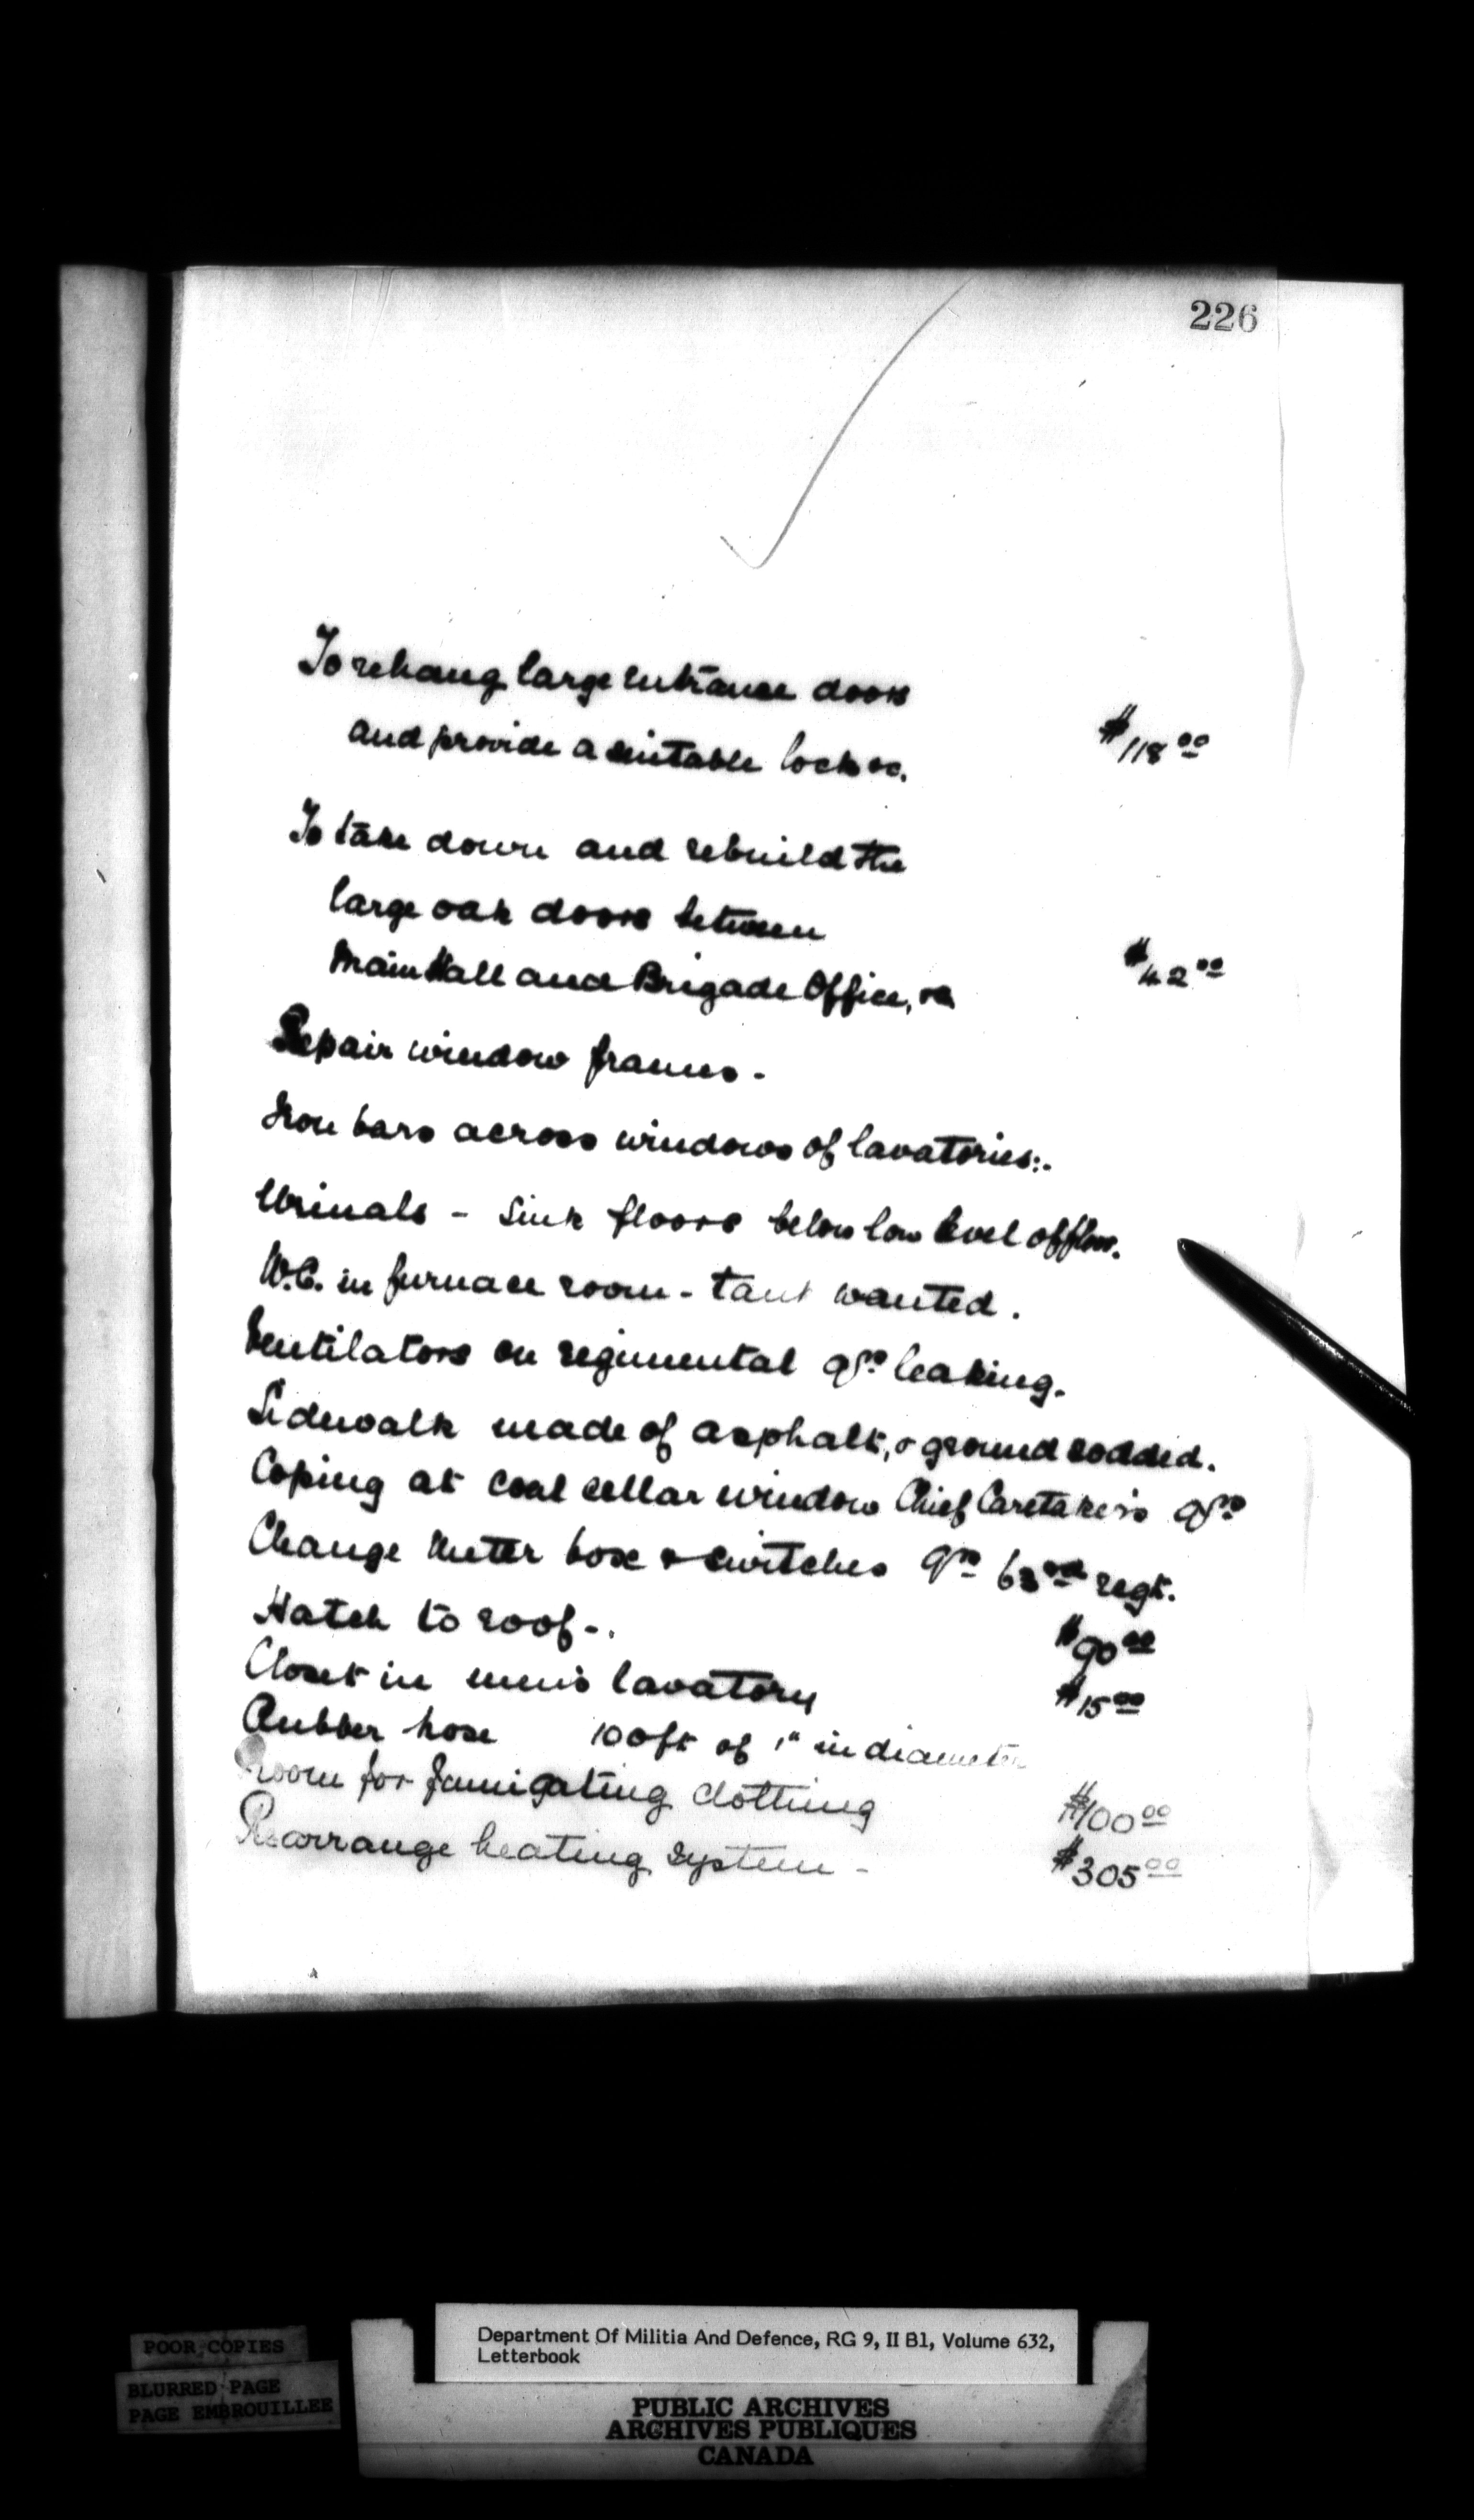 226
To rehang large entrance doors
and provide a suitable lock &c.
$118.00
To take down and rebuild the
large oak doors between
Main Hall and Brigade Office, &c
$42.00
Repair window frames -
Iron bars across windows of lavatories:.
Urinals - Sink floors below low level of floor.
W.C. in furnace room - tank wanted.
Ventilators on regimental qrs leaking.
Sidewalk made of asphalt, & ground sodded.
Coping at coal cellar window Chief Caretaker's qrs
Change meter box & switches qrs 63rd regt.
Hatch to roof - . $90.00
Closet in men's lavatory $15.00
Rubber hose 100 ft of 1" in diameter
Room for fumigating clothing $100.00
Rearrange heating system - $305.00
POOR COPIES
BLURRED PAGE
PAGE EMBROUILLEE
Department Of Militia And Defence, RG 9, II B1, Volume 632,
Letterbook
PUBLIC ARCHIVES
ARCHIVES PUBLIQUES
CANADA